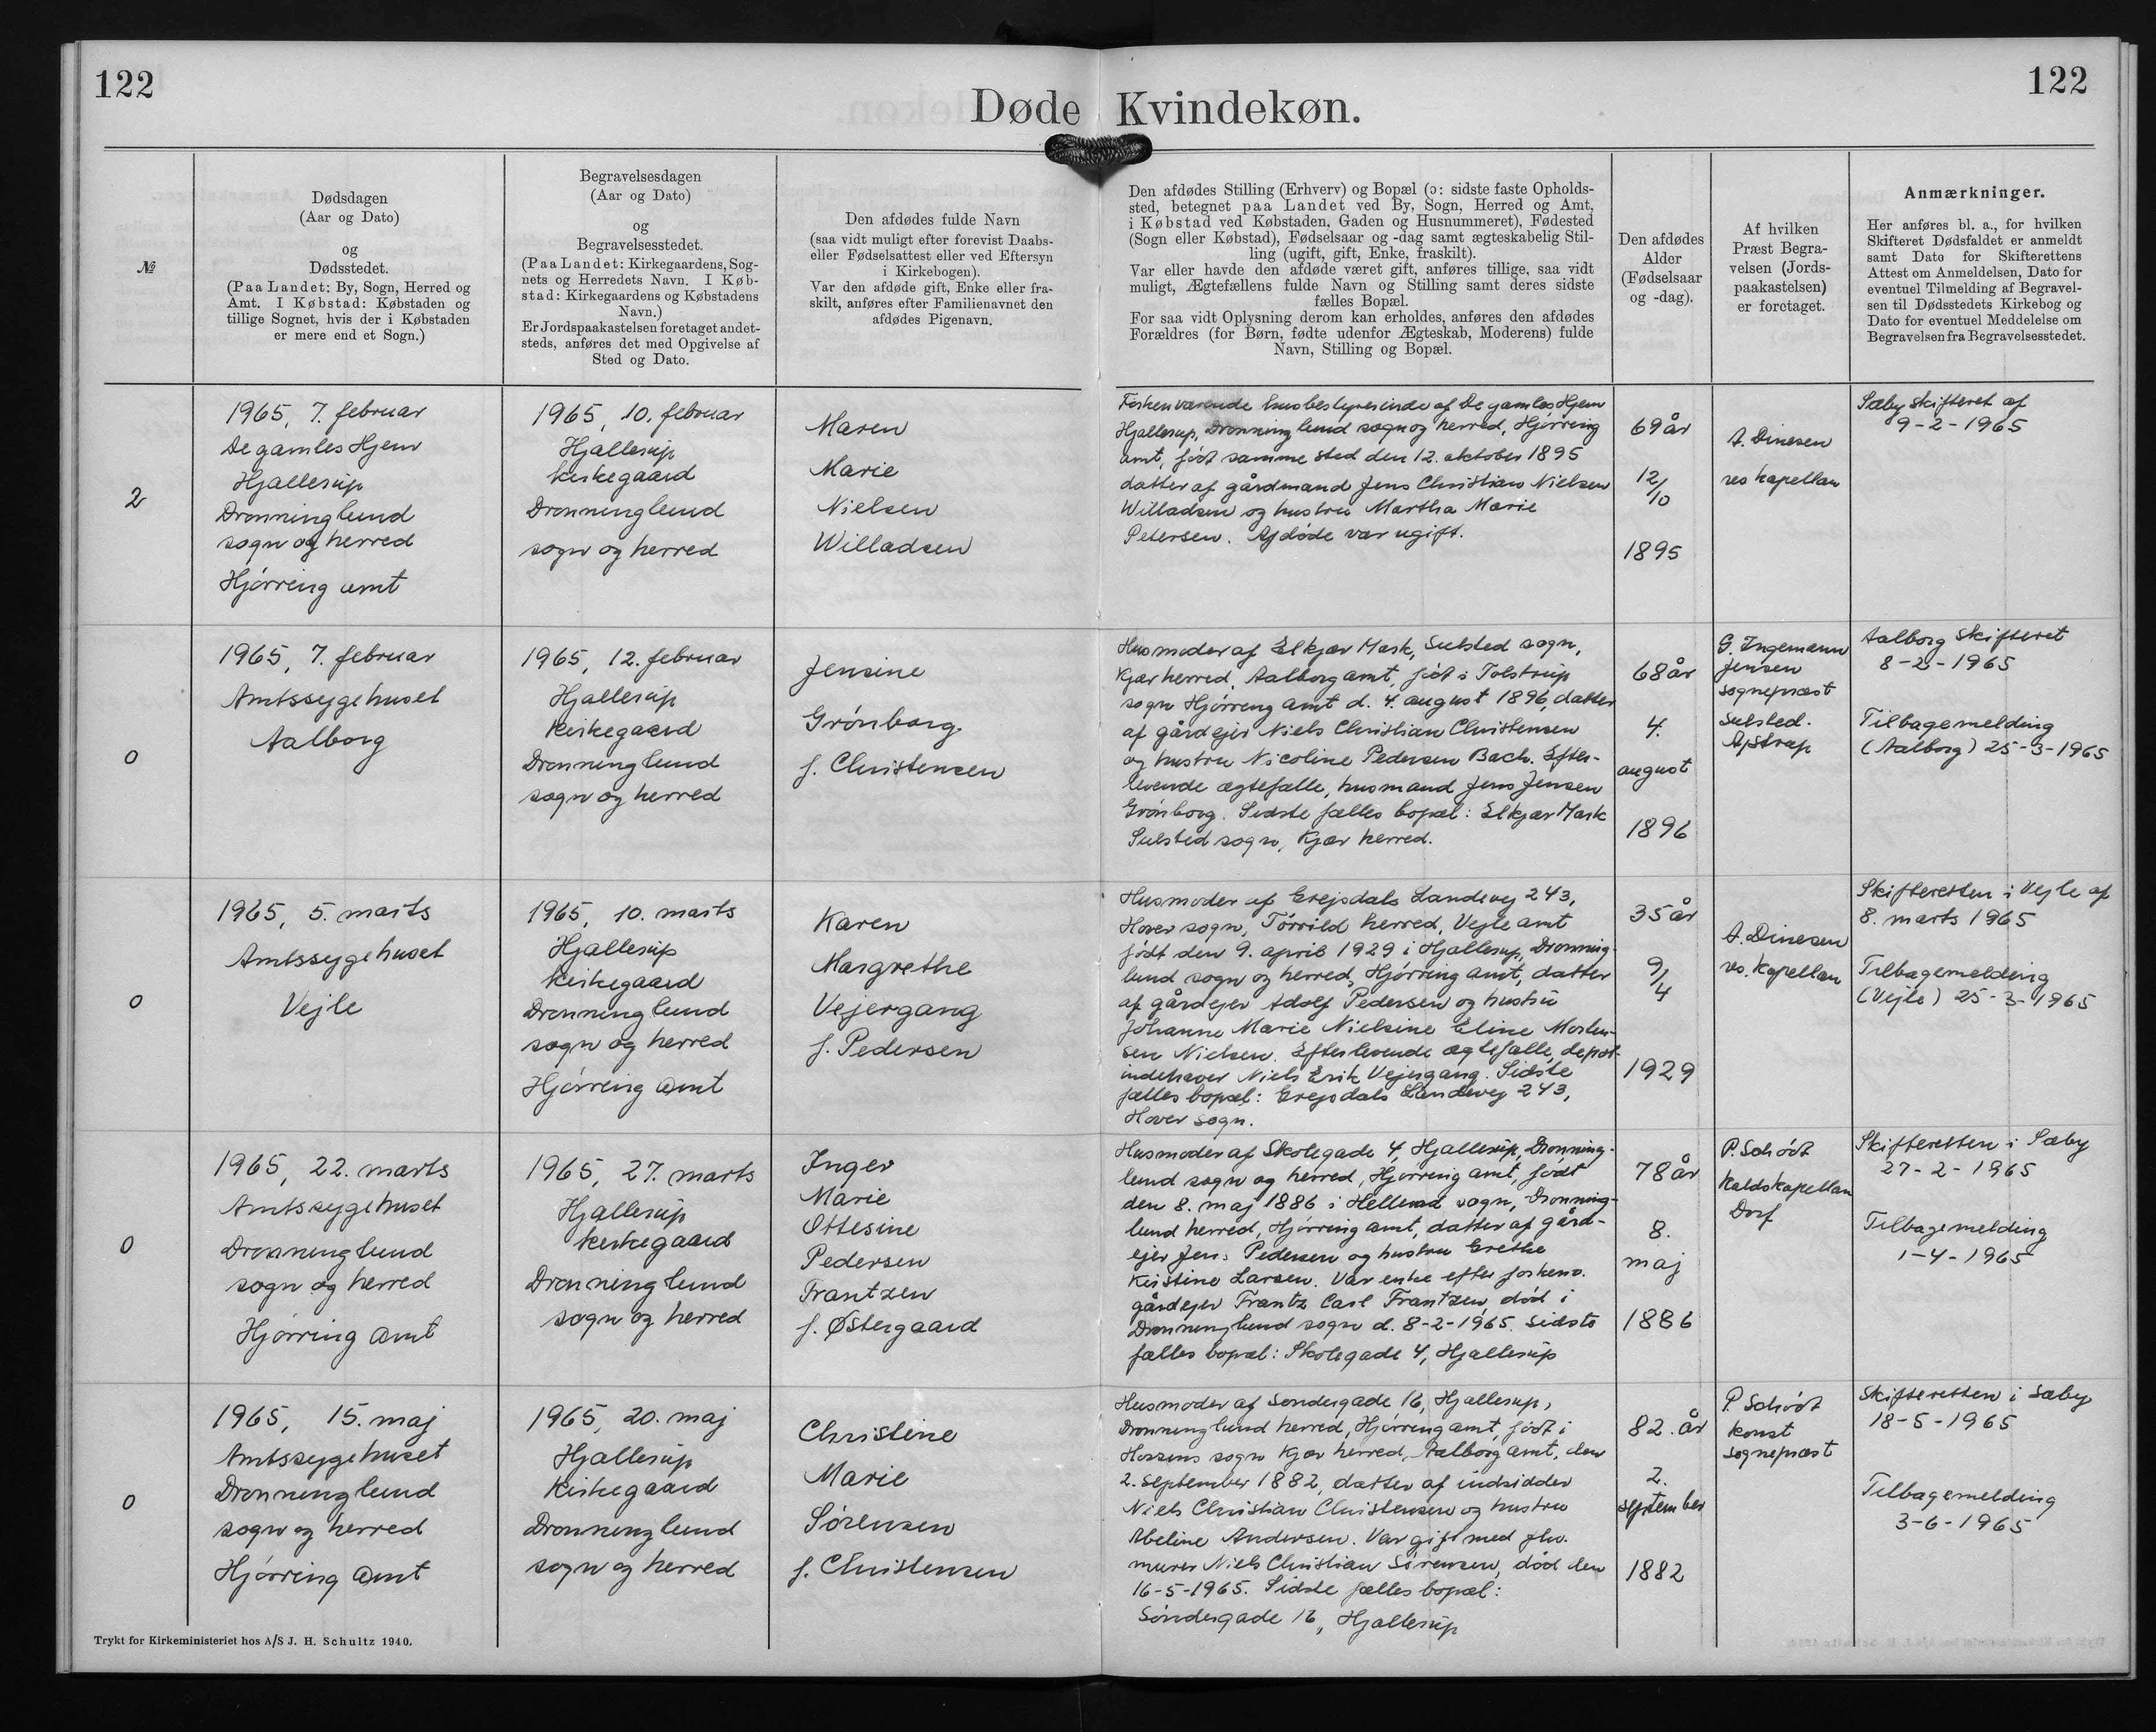 122
122
Døde Kvindekøn.
№
Dødsdagen
(Aar og Dato)
og
Dødsstedet.
(Paa Landet: By, Sogn, Herred og
Amt. I Købstad: Købstaden og
tillige Sognet, hvis der i Købstaden
er mere end et Sogn.)
Begravelsesdagen
(Aar og Dato)
og
Begravelsesstedet.
(Paa Landet: Kirkegaardens, Sog-
nets og Herredets Navn. I Køb-
stad: Kirkegaardens og Købstadens
Navn.)
Er Jordspaakastelsen foretaget andet-
steds, anføres det med Opgivelse af
Sted og Dato.
Den afdødes fulde Navn
(saa vidt muligt efter forevist Daabs-
eller Fødselsattest eller ved Eftersyn
i Kirkebogen).
Var den afdøde gift, Enke eller fra-
skilt, anføres efter Familienavnet den
afdødes Pigenavn.
Den afdødes Stilling (Erhverv) og Bopæl (ɔ: sidste faste Opholds-
sted, betegnet paa Landet ved By, Sogn, Herred og Amt,
i Købstad ved Købstaden, Gaden og Husnummeret), Fødested
(Sogn eller Købstad), Fødselsaar og -dag samt ægteskabelig Stil-
ling (ugift, gift, Enke, fraskilt).
Var eller havde den afdøde været gift, anføres tillige, saa vidt
muligt, Ægtefællens fulde Navn og Stilling samt deres sidste
fælles Bopæl.
For saa vidt Oplysning derom kan erholdes, anføres den afdødes
Forældres (for Børn, fødte udenfor Ægteskab, Moderens) fulde
Navn, Stilling og Bopæl.
Den afdødes
Alder
(Fødselsaar
og -dag).
Af hvilken
Præst Begra-
velsen (Jords-
paakastelsen)
er foretaget.
Anmærkninger.
Her anføres bl. a., for hvilken
Skifteret Dødsfaldet er anmeldt
samt Dato for Skifterettens
Attest om Anmeldelsen, Dato for
eventuel Tilmelding af Begravel-
sen til Dødsstedets Kirkebog og
Dato for eventuel Meddelelse om
Begravelsen fra Begravelsesstedet.
2
1965, 7. februar
De gamles Hjem
Hjallerup
Dronninglund
sogn og herred
Hjørring amt
1965, 10. februar
Hjallerup
kirkegaard
Dronninglund
sogn og herred
Maren
Marie
Nielsen
Willadsen
Forhenværende husbestyrerinde af De gamles Hjem
Hjallerup, Dronninglund sogn og herred, Hjørring
amt, født samme sted den 12. oktober 1895
datter af gårdmand Jens Christian Nielsen
Willadsen og hustru Martha Marie
Petersen. Afdøde var ugift.
69 år
12/10
1895
A. Dinesen
res kapellan
Sæby skifteret af
9-2-1965
0
1965, 7. februar
Amtssygehuset
Aalborg
1965, 12. februar
Hjallerup
Kirkegaard
Dronninglund
sogn og herred
Jensine
Grønborg
f. Christensen
Husmoder af Elkjær Mark, Sulsted sogn,
Kjær herred, Aalborg amt, født i Tolstrup
sogn Hjørring amt d. 4. august 1896, datter
af gårdejer Niels Christian Christensen
og hustru Nicoline Pedersen Bach. Efter-
levende ægtefælle, husmand Jens Jensen
Grønborg. Sidste fælles bopæl: Elkjær Mark
Sulsted sogn, Kjær herred.
68 år
4.
august
1896
G. Ingemann
Jensen
sognepræst
Sulsted.
Ajstrup
Aalborg Skifteret
8-2-1965
Tilbagemelding
(Aalborg) 25-3-1965
0
1965, 5. marts
Amtssygehuset
Vejle
1965, 10. marts
Hjallerup
kirkegaard
Dronninglund
sogn og herred
Hjørring amt
Karen
Margrethe
Vejergang
f. Pedersen
Husmoder af Grejsdals Landevej 243,
Hover sogn, Tørrild herred, Vejle amt
født den 9. april 1929 i Hjallerup, Dronning-
lund sogn og herred, Hjørring amt, datter
af gårdejer Adolf Pedersen og hustru
Johanne Marie Nielsine Eline Morten-
sen Nielsen. Efterlevende ægtefælle, depot-
indehaver Niels Erik Vejergang. Sidste
fælles bopæl: Grejsdals Landevej 243,
Hover sogn.
35 år
9/4
1929
A. Dinesen
res. kapellan
Skifteretten i Vejle af
8. marts 1965
Tilbagemelding
(Vejle) 25-3-1965
0
1965, 22. marts
Amtssygehuset
Dronninglund
sogn og herred
Hjørring amt
1965, 27. marts
Hjallerup
kirkegaard
Dronninglund
sogn og herred
Inger
Marie
Ottesine
Pedersen
Frantzen
f. Østergaard
Husmoder af Skolegade 4, Hjallerup, Dronning-
lund sogn og herred, Hjørring amt, født
den 8. maj 1886 i Hellevad sogn, Dronning-
lund herred, Hjørring amt, datter af gård-
ejer Jens Pedersen og hustru Grethe
Kirstine Larsen. Var enke efter forhenv.
gårdejer Frantz Carl Frantzen, død i
Dronninglund sogn d. 8-2-1965. Sidste
fælles bopæl: Skolegade 4, Hjallerup
78 år
8.
maj
1886
P. Schiødt
Kaldskapellan
Dorf
Skifteretten i Sæby
27-2-1965
Tilbagemelding
1-4-1965
0
1965, 15. maj
Amtssygehuset
Dronninglund
sogn og herred
Hjørring amt
1965, 20. maj
Hjallerup
Kirkegaard
Dronninglund
sogn og herred
Christine
Marie
Sørensen
f. Christensen
Husmoder af Søndergade 16, Hjallerup,
Dronninglund herred, Hjørring amt, født i
Horsens sogn Kjær herred, Aalborg amt, den
2. september 1882, datter af indsidder
Niels Christian Christensen og hustru
Abeline Andersen. Var gift med fhv.
murer Niels Christian Sørensen, død den
16-5-1965. Sidste fælles bopæl:
Søndergade 16, Hjallerup
82. år
2.
september
1882
P. Schiødt
konst
sognepræst
Skifteretten i Sæby
18-5-1965
Tilbagemelding
3-6-1965
Trykt for Kirkeministeriet hos A/S J. H. Schultz 1940.